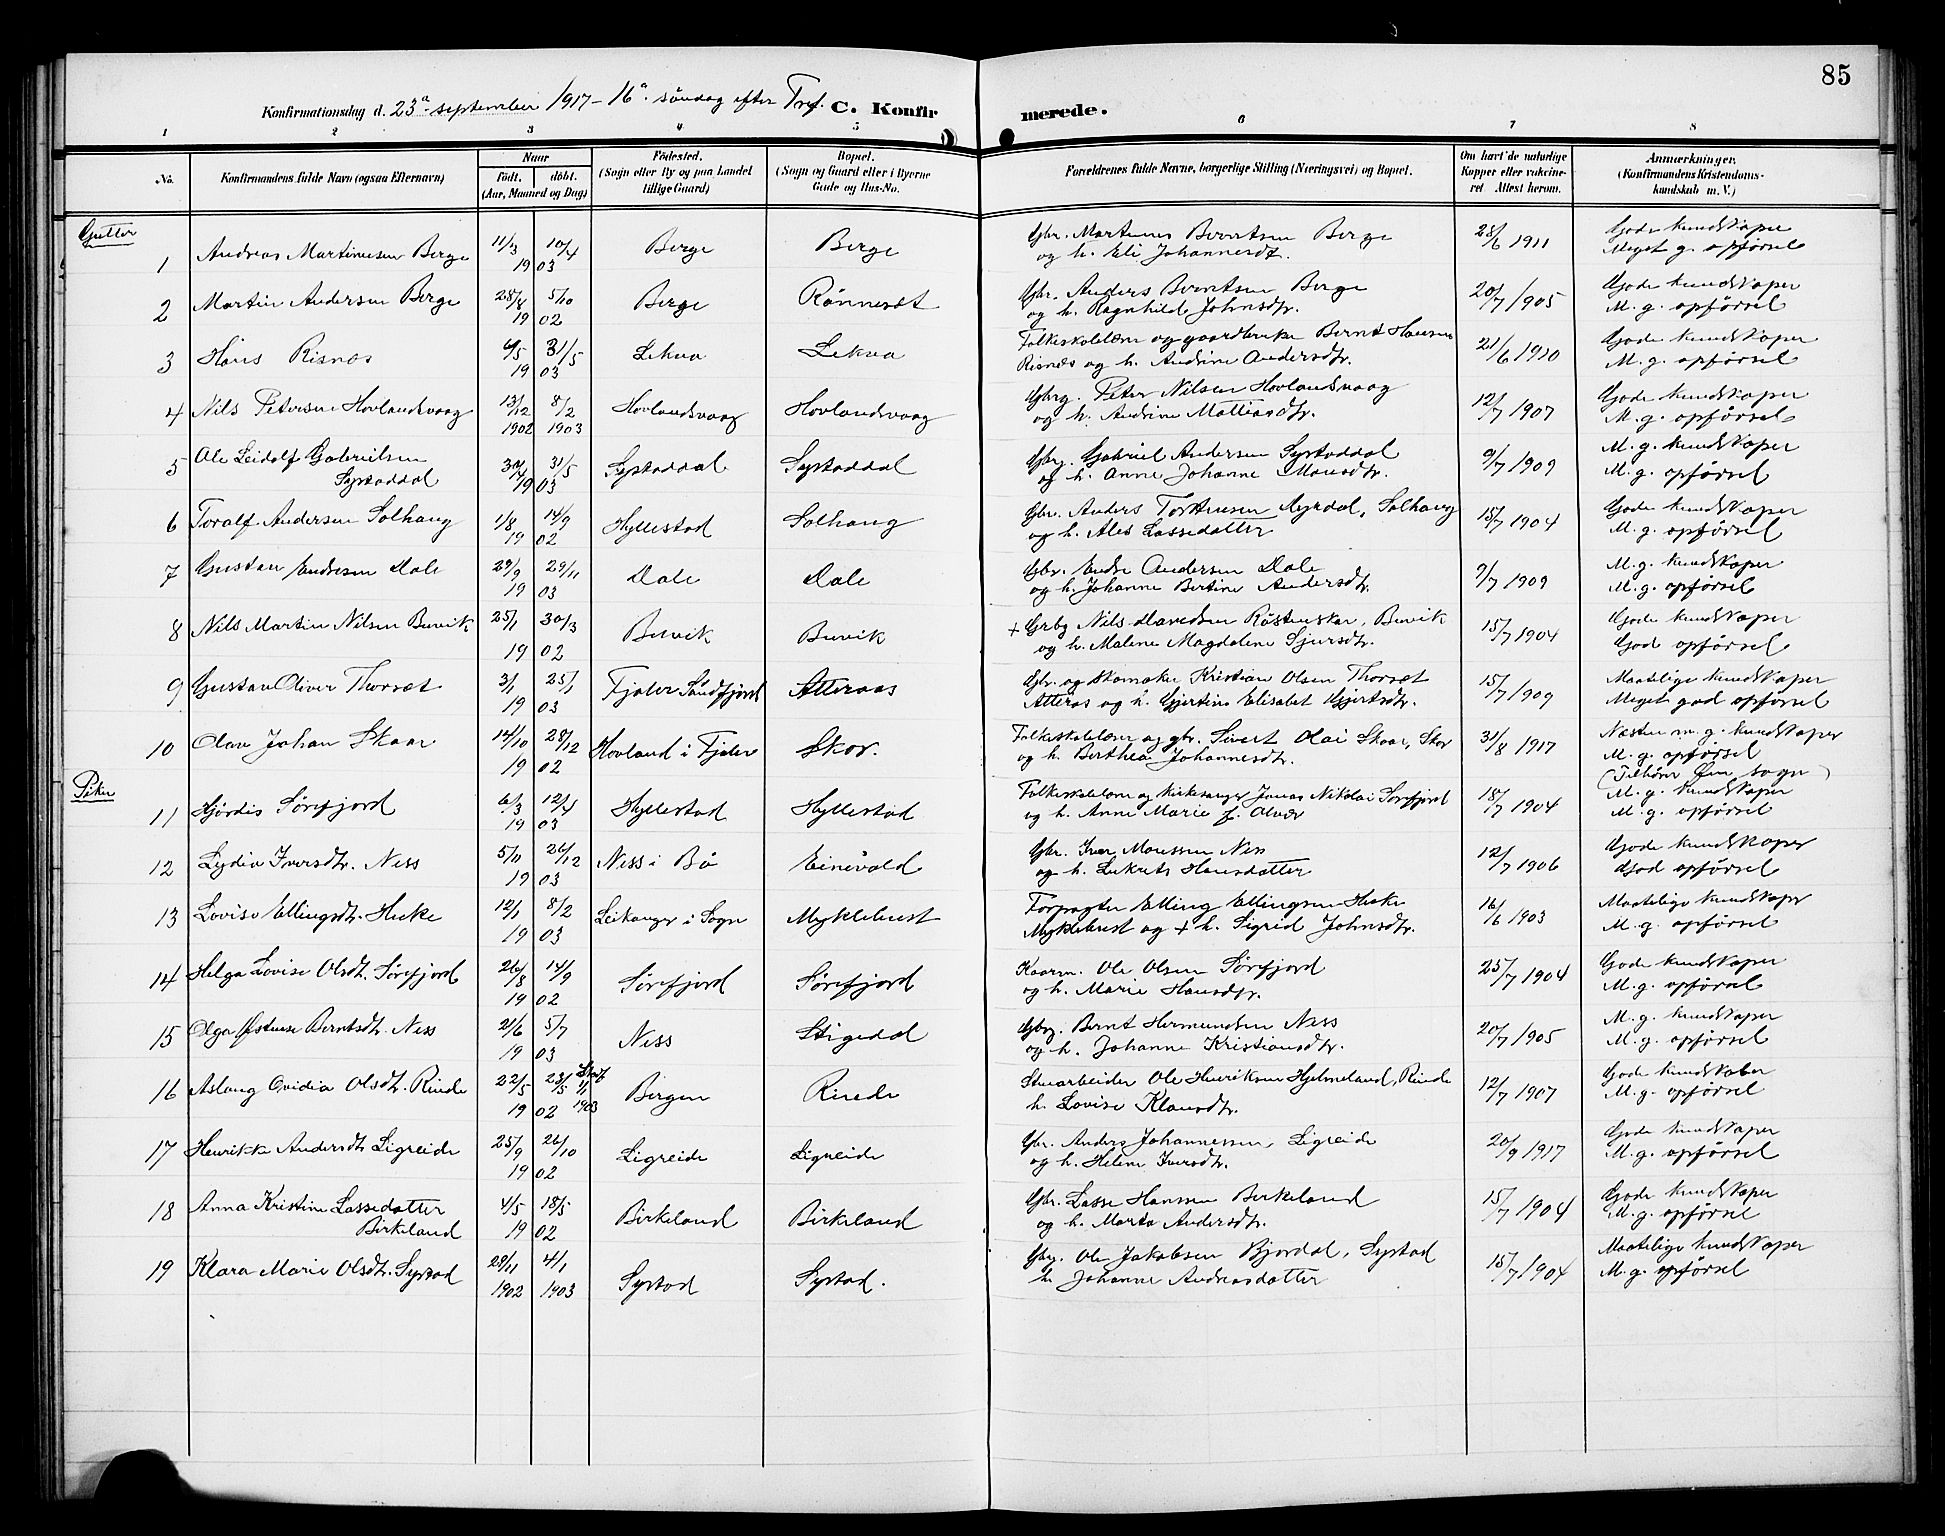 85
Konfirmationsdag d. 23de september 1917 - 16de søndag efter Tref. C. Konfirmerede.
1 2 3 4 5 6 7 8
No. Konfirmandens fulde Navn (ogsaa Efternavn) Naar Født. døbt. (Aar, Maaned og Dag) Fødested. (Sogn eller By og paa Landet tillige Gaard) Bopæl. (Sogn og Gaard eller i Byerne Gade og Hus-No. Forældrenes fulde Navne, borgerlige Stilling (Næringsvei) og Bopæl. Om havt de naturlige Kopper eller vaccineret Attest herom. Anmærkninger. (Konfirmandens Kristendomskundskab m. V.)
Gutter
1 Andreas Martinusen Berge 11/3 10/4 Berge Berge Gbr. Martinus Berntsen Berge 28/6 1911 Gode kundskaper
19 03 og h. Eli Johannesdt. Meget g. opførsel
2 Martin Andersen Berge 28/8 5/10 Berge Rønneset Gbr. Anders Berntsen Berge 20/7 1905 Gode kundskaper
19 02 og h. Ragnhild Johnsdtr. M. g. opførsel
3 Hans Risnes 4/5 31/5 Lekva Lekva Folkeskolelærer og gaardbruker Bernt Hansen 21/6 1910 Gode kundskaper
19 03 Risnes og h. Andrine Andersdtr. M. g. opførsel
4 Nils Petersen Hovlandsvaag 13/12 8/2 Hovlandsvaag Hovlandsvaag Gbrg. Peter Nilsen Hovlandsvaag 12/7 1907 Gode kundskaper
1902 1903 og h. Andrine Mattiasdtr. M. g. opførsel
5 Ole Leidolf Gabrielsen 30/4 31/5 Systaddal Systaddal Gbrg. Gabriel Andersen Systaddal 9/7 1909 M. g. kundskaper
Systaddal 19 03 og h. Anne Johanne Monsdtr. M. g. opførsel
6 Toralf Andersen Solhaug 1/8 14/9 Hyllestad Solhaug Gbr. Anders Torstensen Myrdal, Solhaug 15/7 1904 Gode kundskaper
19 02 og h. Ales Lassedatter M. g. opførsel
7 Gustav Endresen Dale 29/9 29/11 Dale Dale Gbr. Endre Andersen Dale 9/7 1909 M. g. kundskaper
19 03 og h. Johanne Bertine Andersdtr. M. g. opførsel
8 Nils Martin Nilsen Buvik 25/1 30/3 Buvik Buvik + Grbg Nils Davidsen Røstensker, Buvik 15/7 1904 Gode kundskaper
19 02 og h. Malene Magdalene Sjursdtr. God opførsel
9 Gustav Oliver Thorset 3/1 25/1 Fjaler Søndfjord Atteraas Gbr. og skomaker Kristian Olsen Thorset 15/7 1909 Maatelige kundskaper
19 03 Atteras og h. Gjertine Elisabet Gjertsdtr. Meget god opførsel
10 Olav Johan Skaar 14/10 28/12 Hovland i Fjaler Skor. Folkeskolelærer og gbr. Sivert Olai Skaar, Skor 31/8 1917 Næsten m. g. kundskaper
19 02 og h. Berthea Johannesdtr. M. g. opførsel
(Tilhører sogn)
Piker
11 Hjørdis Sørefjord 6/3 12/4 Hyllestad Hyllestad Folkeskolelærer og kirkesanger Jonas Nikolai Sørefjord 18/7 1904 M. g. kundskaper
19 03 og h. Anne Marie f. Alvær M. g. opførsel
12 Lydia Iversdtr. Ness 5/11 26/12 Ness i Bø Einevold Gbr. Iver Monssen Ness 12/7 1906 Gode kundskaper
19 03 og h. Lukrets Hansdatter God opførsel
13 Lovise Ellingsdt. Huke 12/1 8/2 Leikanger i Sogn Myklebust Forpagter Elling Ellingsen Huke 16/6 1903 Maatelige kundskaper
19 03 Myklebust og + h. Sigrid Johnsdtr. M. g. opførsel
14 Helga Lovise Olsdt. Sørefjord 26/8 14/9 Sørefjord Sørefjord Kaarm. Ole Olsen Sørefjord 25/7 1904 Gode kundskaper
19 02 og h. Marie Hansdtr. M. g. opførsel
15 Olga Østense Berntsdt. Ness 21/6 5/7 Ness Stigedal Gbrg. Bernt Hermundsen Ness 20/7 1905 M. g. kundskaper
19 03 og h. Johanne Kristiansdtr. M. g. opførsel
16 Aslaug Ovidia Olsdt. Rinde 22/5 23/5 1/1 Bergen Rinde Stenarbeider Ole Henriksen Hjelmeland, Rinde 12/7 1907 Gode kundskaber
19 02 1903 h. Lovise Klausdtr. M. g. opførsel
17 Henrikke Andersdt. Ligreide 25/9 26/10 Ligreide Ligreide Gbr. Anders Johannessen, Ligreide 20/9 1917 Gode kundskaper
19 02 og h. Helene Iversdtr. M. g. opførsel
18 Anna Kristine Lassedatter 4/5 18/5 Birkeland Birkeland Gbr. Lasse Hanssen Birkeland 15/7 1904 Gode kundskaper
Birkeland 19 02 og h. Marta Andersdtr. M. g. opførsel
19 Klara Marie Olsdt. Systad 28/11 4/1 Systad Systad. Gbrg. Ole Jakobsen Bjordal, Systad 15/7 1904 Maatelige kundskaper
1902 1903 h. Johanne Andreasdatter M. g. opførsel